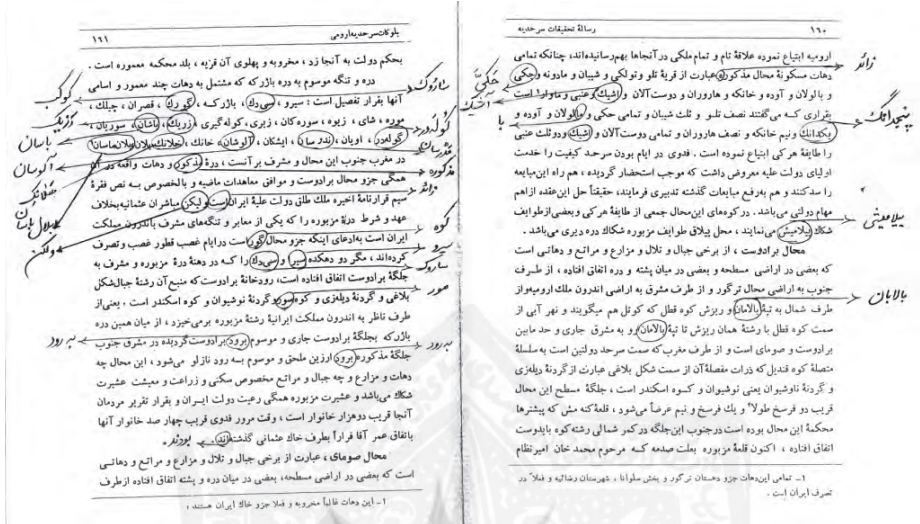 ۱۶۰
رسالهٔ تحقیقات سرحدیه
ارومیه ابتیاع نموده علاقهٔ تام و تمام ملکی در آنجاها بهم‌رسانیده‌اند، چنانکه تمامی
دهات مسکونهٔ محال مذکوره عبارت از قریهٔ تلو و تولکی و شیبان و مادونه وجکی
و بالولان و آوده و خانکه و هاروران و دوست‌آلان و اشپک و عنبی و ماوارا است
بقراری که می‌گفتند نصف تلو و ثلث شیبان و تمامی حکی و مالولان و آوده و
یکدانک ونیم خانکه و نصف هاروران و تمامی دوست‌آلان و اشپک ودوثلث عنبی
را طایفهٔ هرکی ابتیاع نموده است. فدوی در ایام بودن سرحد کیفیت را خدمت
اولیای دولت علیه معروض داشت که موجب استحضار گردیده، هم راه این‌مبایعه
را سدکنند و هم به‌رفع مبایعات گذشته تدبیری فرمایند، حقیقتاً حل این‌عقده ازاهم
مهام دولتی می‌باشد. در کوه‌های این‌محال جمعی از طایفهٔ هرکی و بعضی‌ازطوایف
شکاک پیلامیش می‌نمایند، محل ییلاق طوایف مزبوره شکاک دره دیری می‌باشد.
محال برادوست، از برخی جبال و تلال و مزارع و مراتع و دهاتی است
که بعضی در اراضی مسطحه و بعضی در میان پشته و دره اتفاق افتاده، از طرف
جنوب به اراضی محال ترگور و از طرف مشرق به اراضی اندرون ملک ارومیه‌واز
طرف شمال به تپهٔ بالامان و ریزش کوه قطل که کوتل هم میگویند و نهر آبی از
سمت کوه قطل با رشتهٔ همان ریزش تا تپهٔ بالامان رو به مشرق جاری و حد مابین
برادوست و صومای است و از طرف مغرب که سمت سرحد دولتین است به‌سلسلهٔ
متصلهٔ کوه قندیل که ذرات مفصلهٔ آن از سمت شکل بلاغی عبارت ازگردنهٔ دیله‌زی
و گردنهٔ ناوشیوان یعنی نوشیوان و کسوه اسکندر است، جلگهٔ مسطح این محال
قریب دو فرسخ طولاً و یك فرسخ و نیم عرضاً می‌شود، قلعهٔ کنه مش که پیشترها
محکمهٔ این محال بوده است درجنوب این‌جلگه در کمر شمالی رشته کوه بایدوست
اتفاق افتاده، اکنون قلعهٔ مزبوره بعلت صدمه کسه مرحوم محمد خان امیرنظام
۱ـ تمامی این‌دهات جزو دهستان ترگور و بخش سلوانا، شهرستان رضائیه و فعلاً در
تصرف ایران است.
زائد
پنجدانگ
پیلامیش
بالابان
حکیّ
با
بلوکات سرحدیهٔ ارومی
۱۶۱
بحکم دولت به آنجا زد، مخروبه و پهلوی آن قریه، بلد محکمه معموره است.
دره و تنگه موسوم به دره باژر که که مشتمل به دهات چند معمور و اسامی
آنها بقرار تفصیل است: سیرو، سی‌دك، باژرکه، گورك، قصران، چبلك،
موره، شای، زیوه، سوره کان، زیری، کوله‌گیری، زریك، باشان، سوریان،
گولمدر، اویان، ندرسان، ایشکان، آلوشان، خانك،
در مغرب جنوب این محال و مشرف بر آنست، درهٔ مذکور و دهات واقعه در آن
همگی جزو محال برادوست و موافق معاهدات ماضیه و بالخصوص بـه نص فقرهٔ
سیم قرارنامهٔ اخیره ملك طلق دولت علیهٔ ایران است ولیکن مباشران عثمانیه‌بخلاف
عهد و شرط درهٔ مزبوره را که یکی از معابر و تنگه‌های مشرف باندرون مملکت
ایران است به‌ادعای اینکه جزو محال گور است درایام غصب قطور غصب وتصرف
کرده‌اند، مگر دو دهکده سیر و سی‌دك را کـه در دهنهٔ درهٔ مزبوره و مشرف به
جلگهٔ برادوست اتفاق افتاده است، رودخانهٔ برادوست که منبع‌آن رشتهٔ جبال‌شکل
بلاغی و گردنهٔ دیله‌زی و کوه سور وگردنهٔ نوشیوان و کوه اسکندر است، یعنی‌از
طرف ناظر به اندرون مملکت ایرانیهٔ رشتهٔ مزبوره برمی‌خیزد، از میان همین دره
باژرکه بجلگهٔ برادوست جاری و موسوم ببرود برادوست گردیده در مشرق جنوب
جلگهٔ مذکوره برود ارزین ملحق و موسوم بـه رود نازلو می‌شود، این محال چه
دهات و مزارع و چه جبال و مراتع مخصوص سکنی و زراعت و معیشت عشیرت
شکاك می‌باشد و عشیرت مزبوره همگی رعیت دولت ایران و بقرار تقریر مردمان
آنجا قریب دوهزار خانوار است، وقت مرور فدوی قریب چهار صد خانوار آنها
باتفاق عمر آقا فراراً بطرف خاك عثمانی گذشته‌اند.
محال صومای، عبارت از برخی جبال و تلال و مزارع و مراتع و دهاتی
است که بعضی در اراضی مسطحه، بعضی در میان دره و پشته اتفاق افتاده ازطرف
۱ـ این دهات غالباً مخروبه و فعلا جزو خاك ایران هستند،
ساروك
کوك
باسان
آلوسان
مذکوره
زائد
گوه
سیرو
ساروك
صور
به رود
به رود
بودند
ولکن